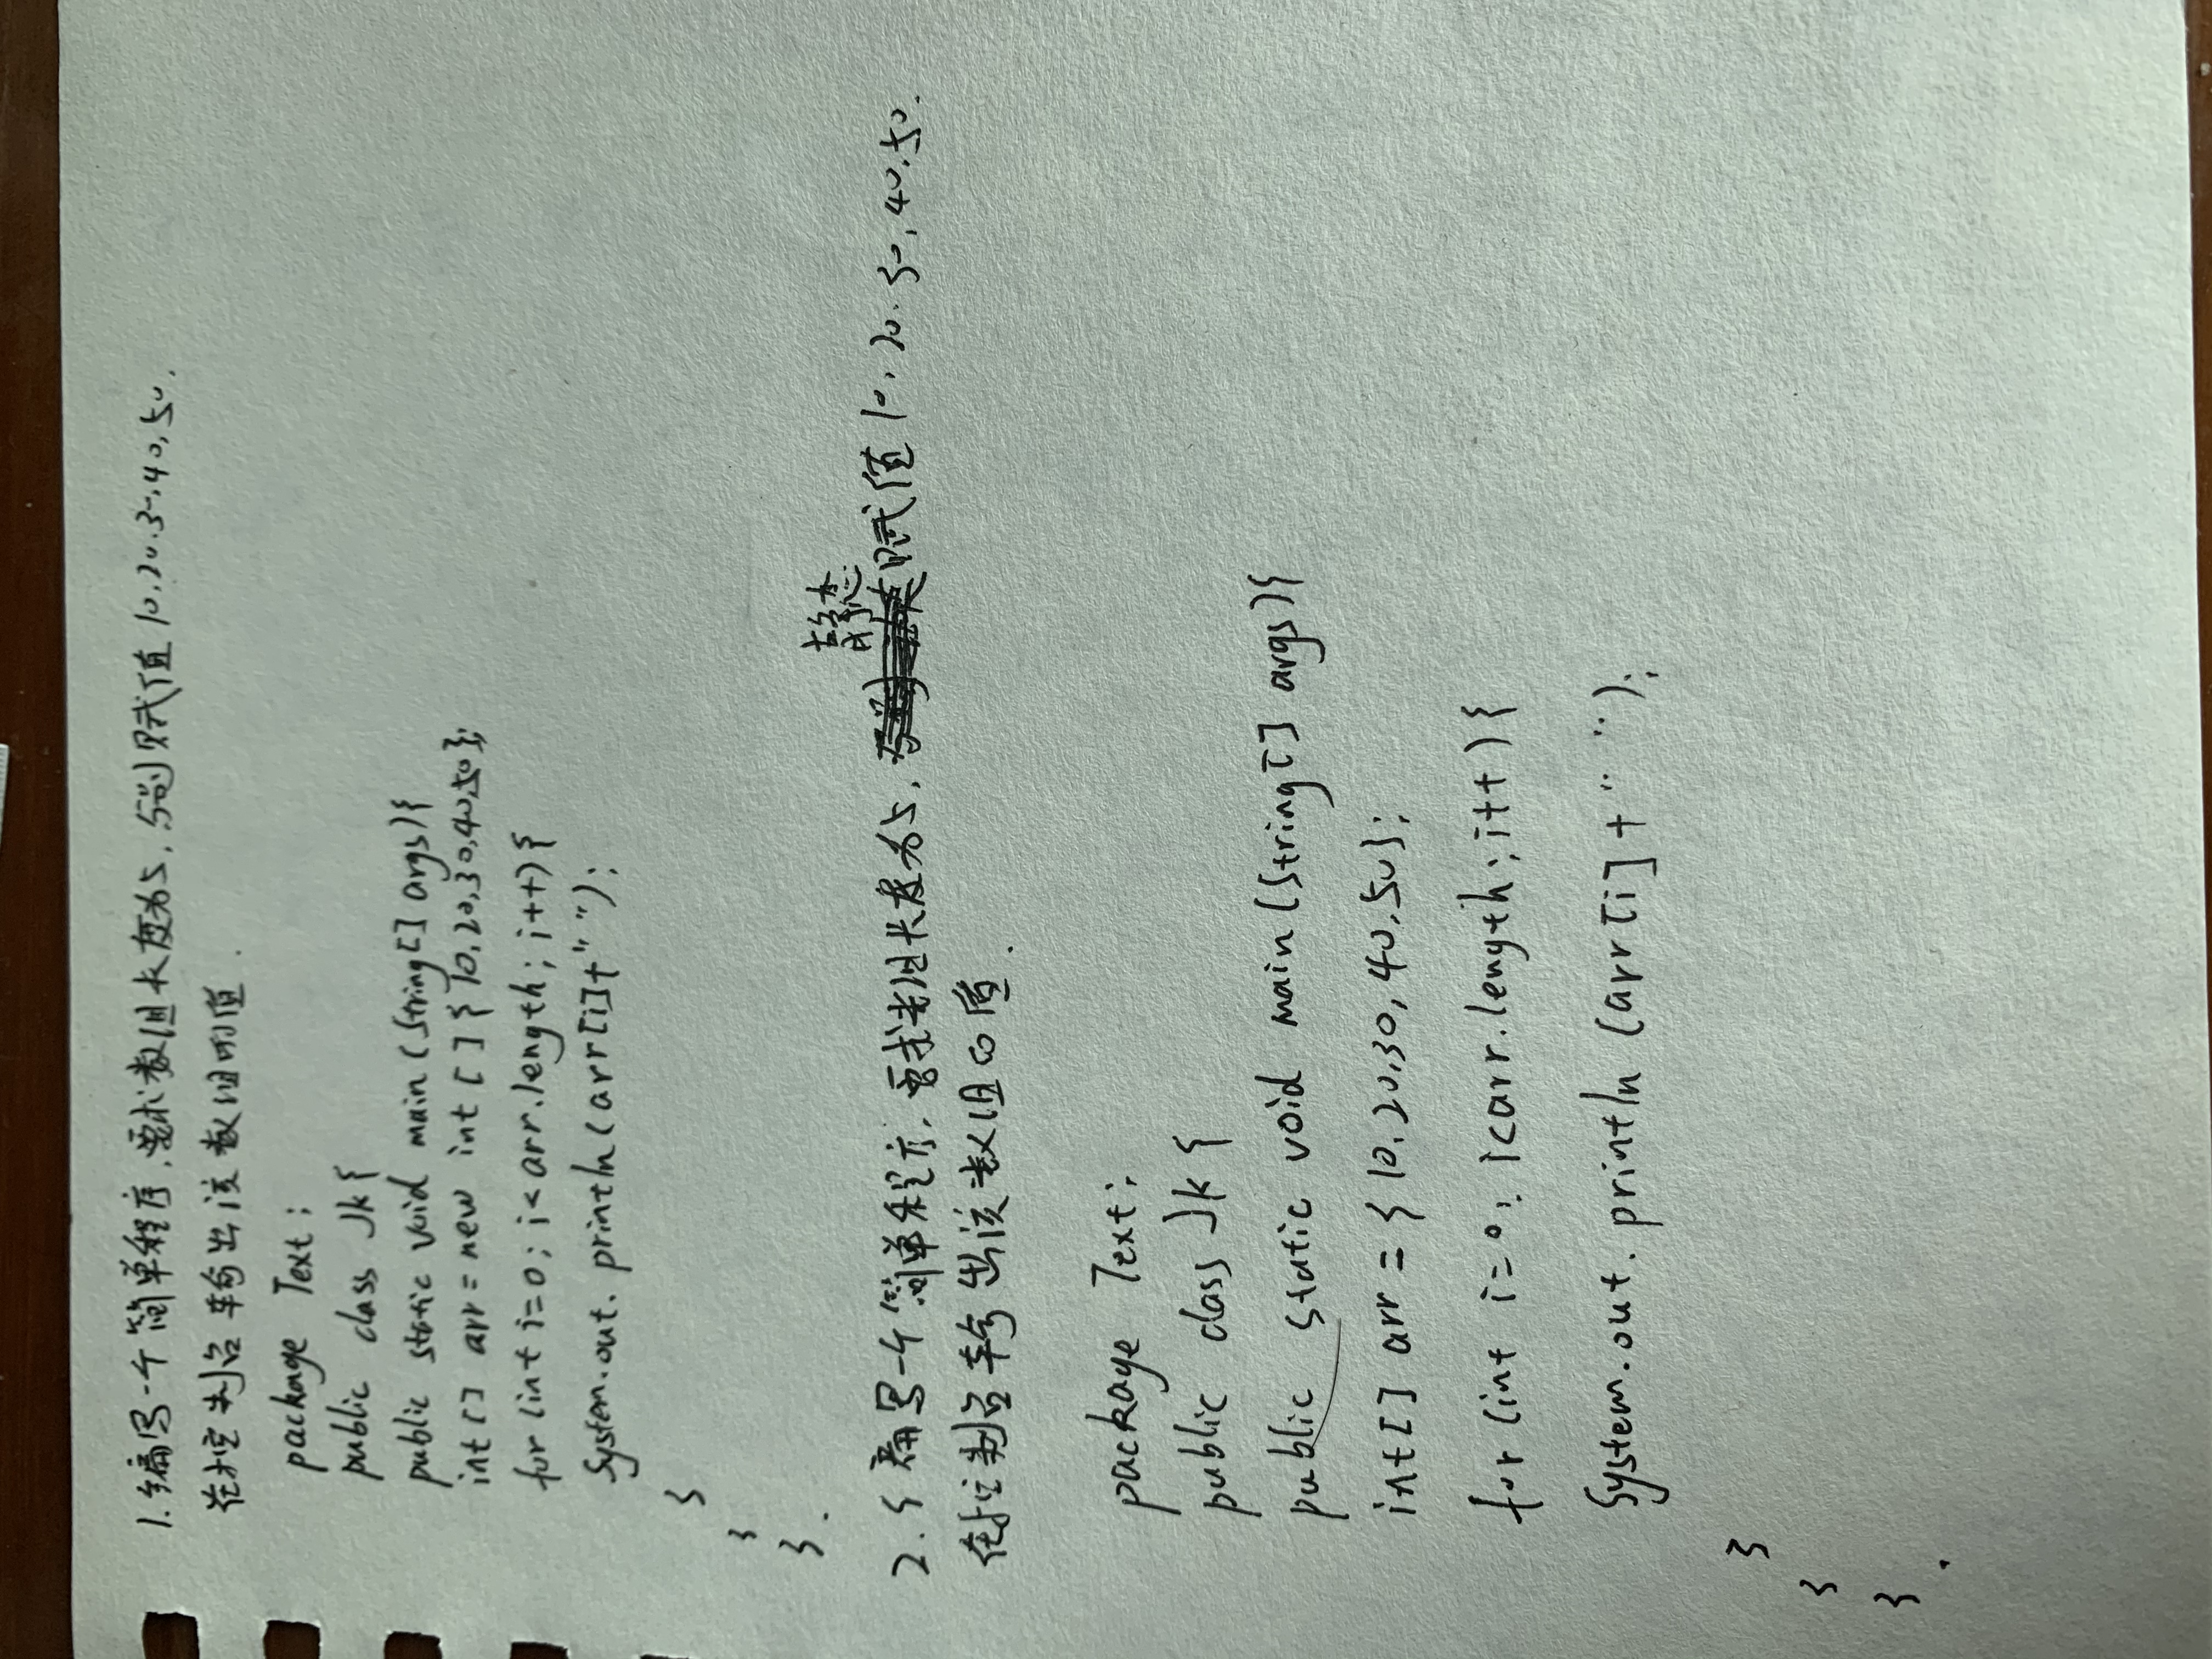 1.编写一个简单程序,要求数组长度为5,分别赋值10,20.30,40,50.
在控制台输出该数组的值.
package Text;
public class Jk{
public static void main(String[] args){
int[] arr=new int[]{10,20,30,40,50};
for(int i=0;i<arr.length;i++){
System.out.println(arr[i]+" ");
}
}
}.
2.编写一个简单程序,要求数组长度为5,静态赋值10,20.30,40.50.
在控制台输出该数组的值.
package Text;
public class Jk{
public static void main(String[] args){
int[] arr={10,20,30,40,50};
for(int i=0;i<arr.length;i++){
System.out.println(arr[i]+" ");
}
}
}.